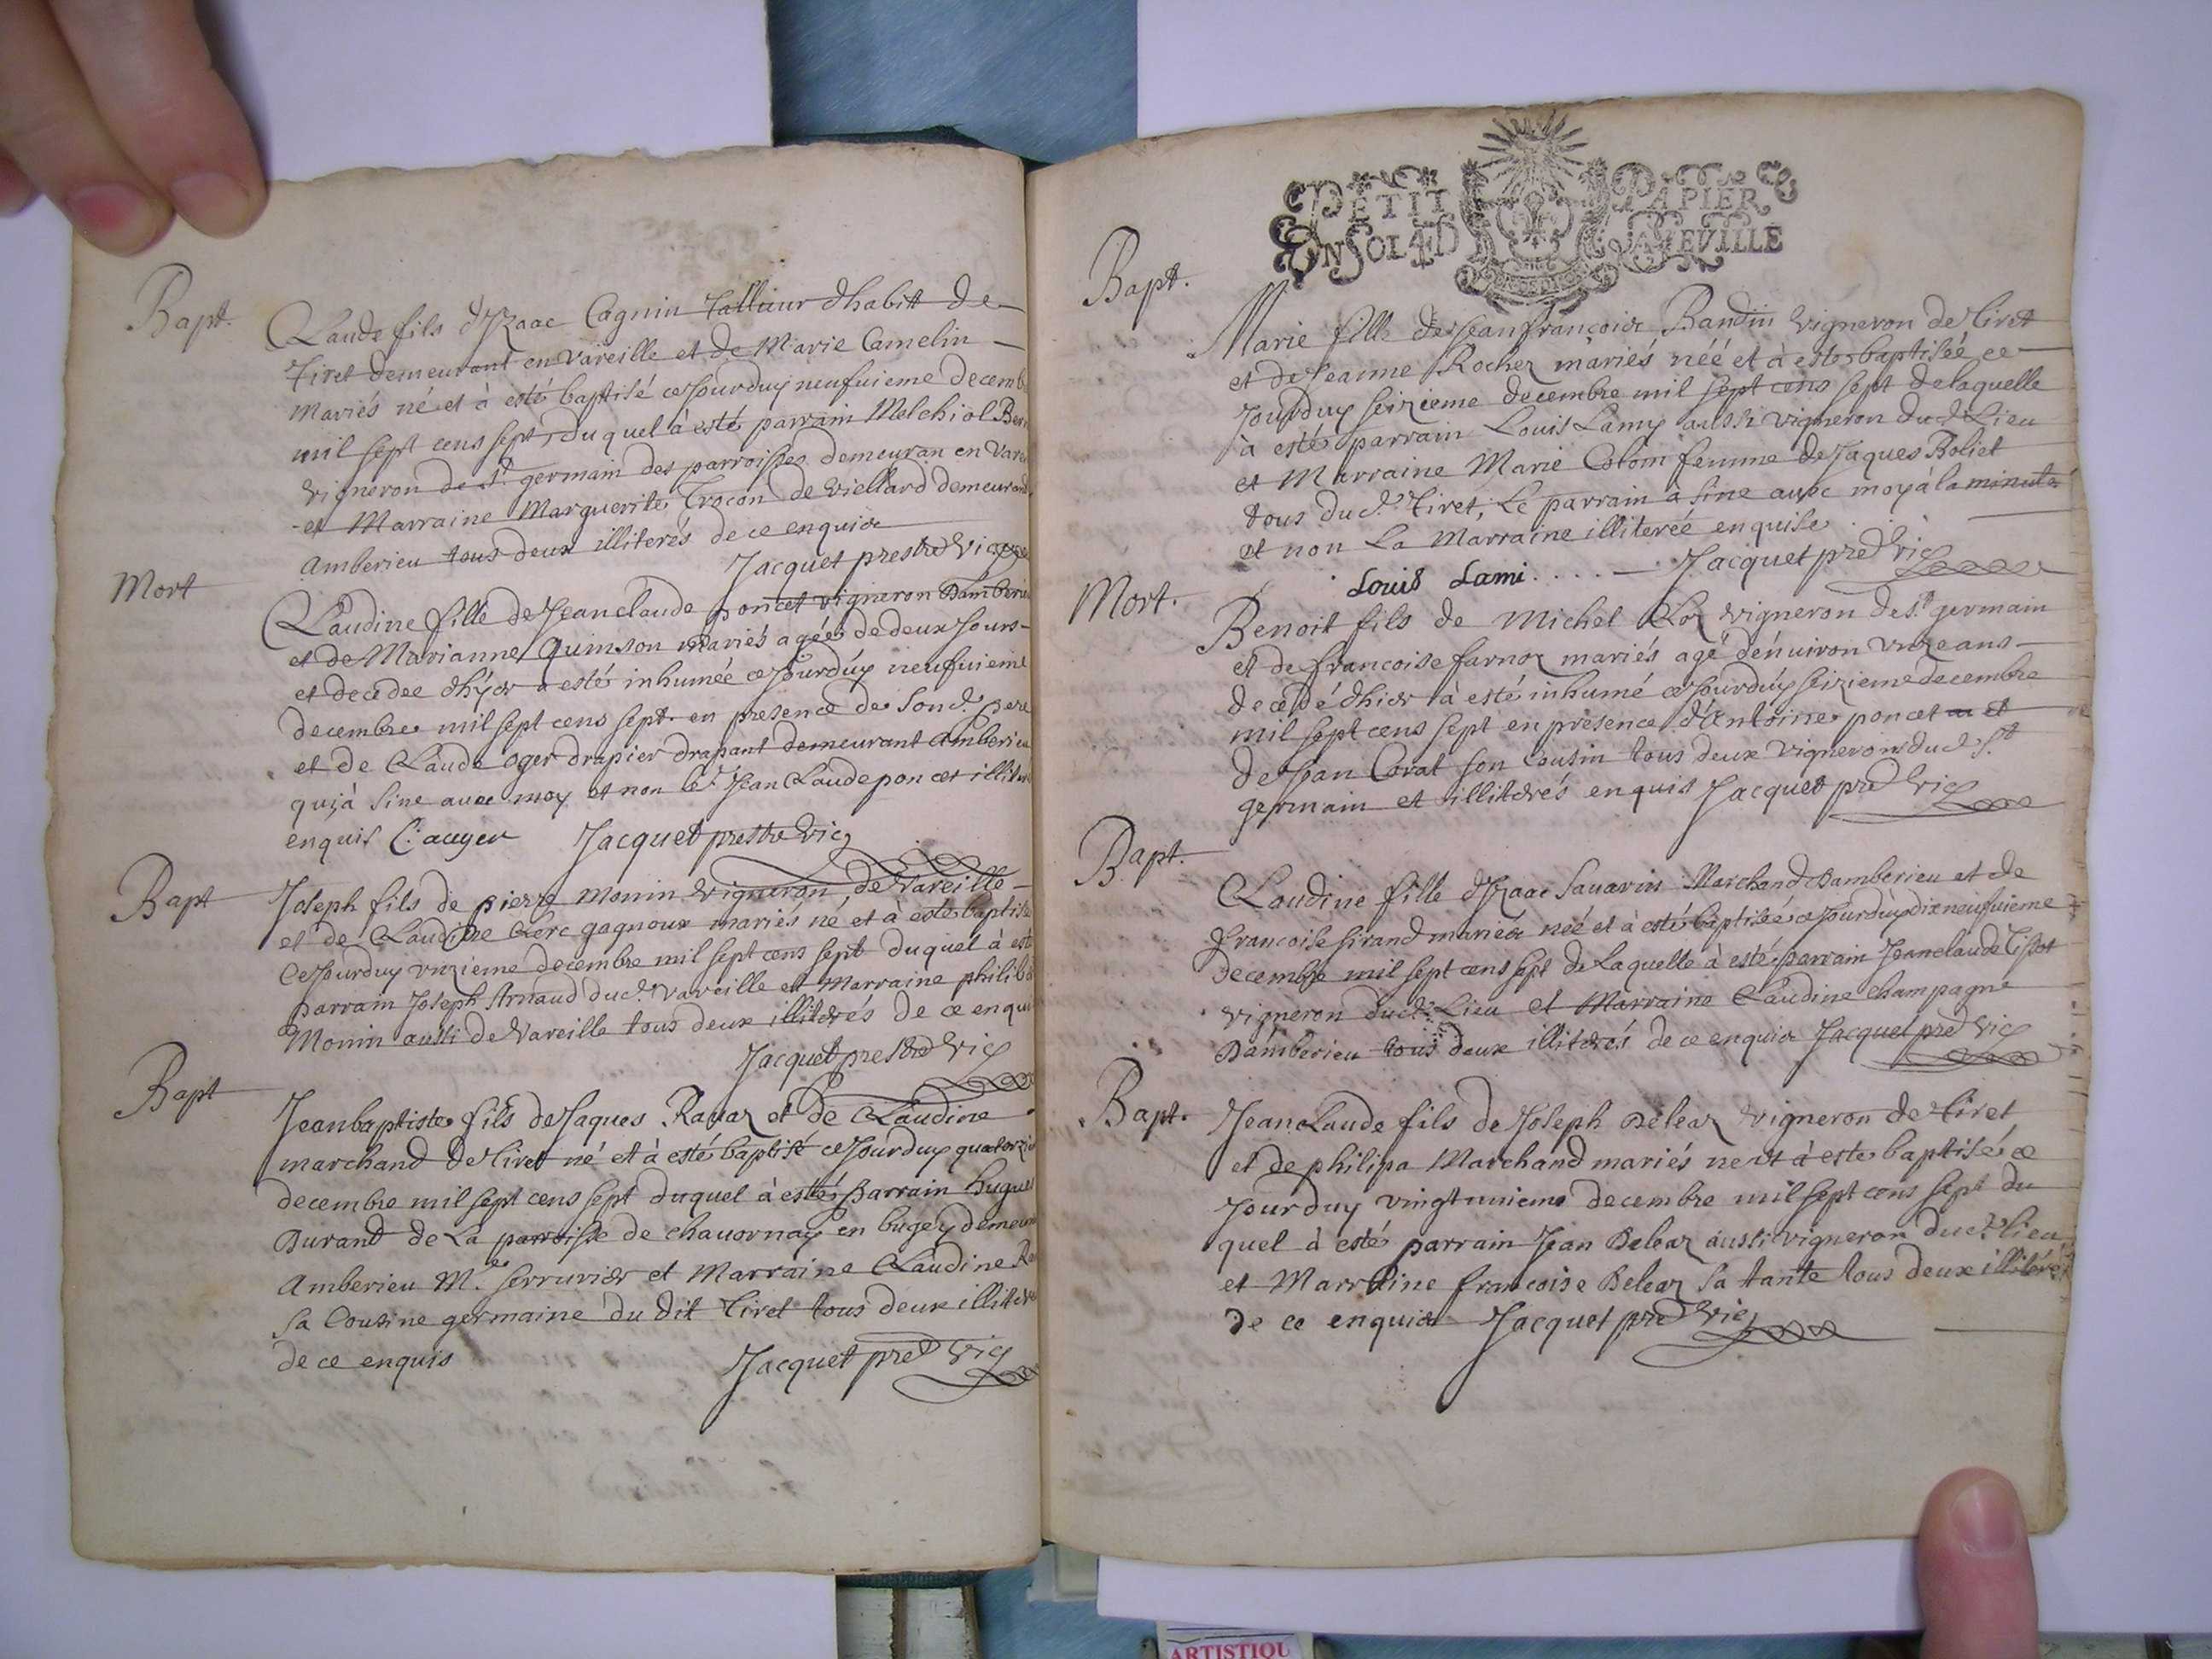 Bapt.
Claude fils d'Izaac Cagnin tallieur dhabitt de
Tiret demeurant en Vareille et de Marie Camelin
Mariés né et à esté baptisé ce jourduy neufuieme decemb
mil sept cens sept, du quel à esté parrain Melchiol
vigneron de St germain des parroisses demeuran en Vare
et Marraine Marguerite Trocon de Viellard demeurant
Amberieu tous deux illiterés de ce enquis
Jacquet prestre Vic
Mort
Claudine fille de Jean claude poncet vigneron Damberie
et de Marianne quinson mariés agée de deux jours
et decedee d'hyer a esté inhumée ce jourdúy neufuieme
decembre mil sept cens sept en presence de Son d. pere
et de Claude oger drapier drapant demeurant Amberieu
qui à sine avec moy et non led Jean Claude poncet illiter
enquis C. auger Jacquet prestre vic
Bapt
Joseph fils de pierre monin vigneron de Vareille
et de Claudine Clerc gagnoux mariés né et à esté baptisé
Ce jourduy vnzieme decembre mil sept cens sept duquel à esté
parrain Joseph Arnaud dud. Vareille et Marraine philib
Monin aussi de Vareille tous deux illiterés de ce enqui
Jacquet prestre Vic
Bapt
Jean baptiste fils de Jaques Rauaz et de Claudine
marchand de tiret né et à esté baptisé ce jourduy quatorzie
decembre mil sept cens sept duquel à esté parrain hugues
Durand de La parroisse de chauornay en bugey demeura
Amberieu Me serrurier et Marraine Claudine Ra
sa Cousine germaine du dit tiret tous deux illitere
de ce enquis Jacquet pred vic
PETIT PAPIER
UN SOL 4 D LA FEVILLE
Bapt.
Marie fille de Jean francois Bandin vigneron de tiret
et de Jeanne Rochez màriés néé et à esté baptisée ce
Jourduy seizieme decembre mil sept cens sept de laquelle
à esté parrain Louis Lamy aussi vigneron dud. Lieu
et Marraine Marie Colom femme de Jaques Boliet
tous dud. tiret, Le parrain à sine avec moy à la minute
et non La Marraine illiterée enquise
Louis Lami Jacquet pred vic
Mort.
Benoit fils de Michel Loz vigneron de St germain
et de francoise farnoz mariés agé d'enuiron vnze ans
decedé d'hier à esté inhumé ce jourdúy seizieme decembre
mil sept cens sept en presence d'Antoine poncet et
de Jean Corat son cousin tous deux vignerons dud. St
germain et illiterés enquis Jacquet pred vic
Bapt.
Claudine fille d'Izaac Sauarin Marchand Damberieu et de
francoise sirand mariés néé et à esté baptiséé ce jourduy dixneufuieme
decembre mil sept cens sept de Laquelle à esté parrain Jean claude Tissot
vigneron dud. Lieu et Marraine Claudine Champagne
Damberieu tous deux illiterés de ce enquis Jacquet pred vic
Bapt.
Jean claude fils de Joseph Beleaz vigneron de tiret
et de philipa Marchand mariés ne et à esté baptisé ce
Jourduy vingtunieme decembre mil sept cens sept du
quel à esté parrain Jean Beleaz aussi vigneron dud. lieu
et Marraine francoise Beleaz sa tante tous deux illiteré
de ce enquis Jacquet pred vic
ARTISTIQU